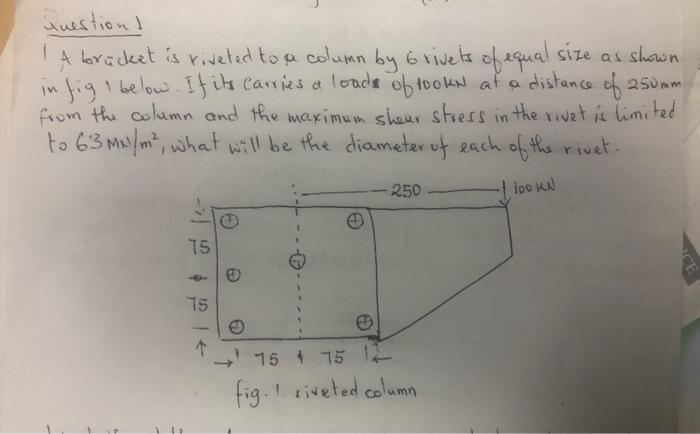 Question 1
1 A bracket is riveted to a column by 6 rivets of equal size as shown
in fig 1 below. If its carries a loads of 100kN at a distance of 250mm
from the column and the maximum shear stress in the rivet is limited
to 63 MN/m², what will be the diameter of each of the rivet.
250
100 KN
75
75
75
75
fig. 1: riveted column
CE